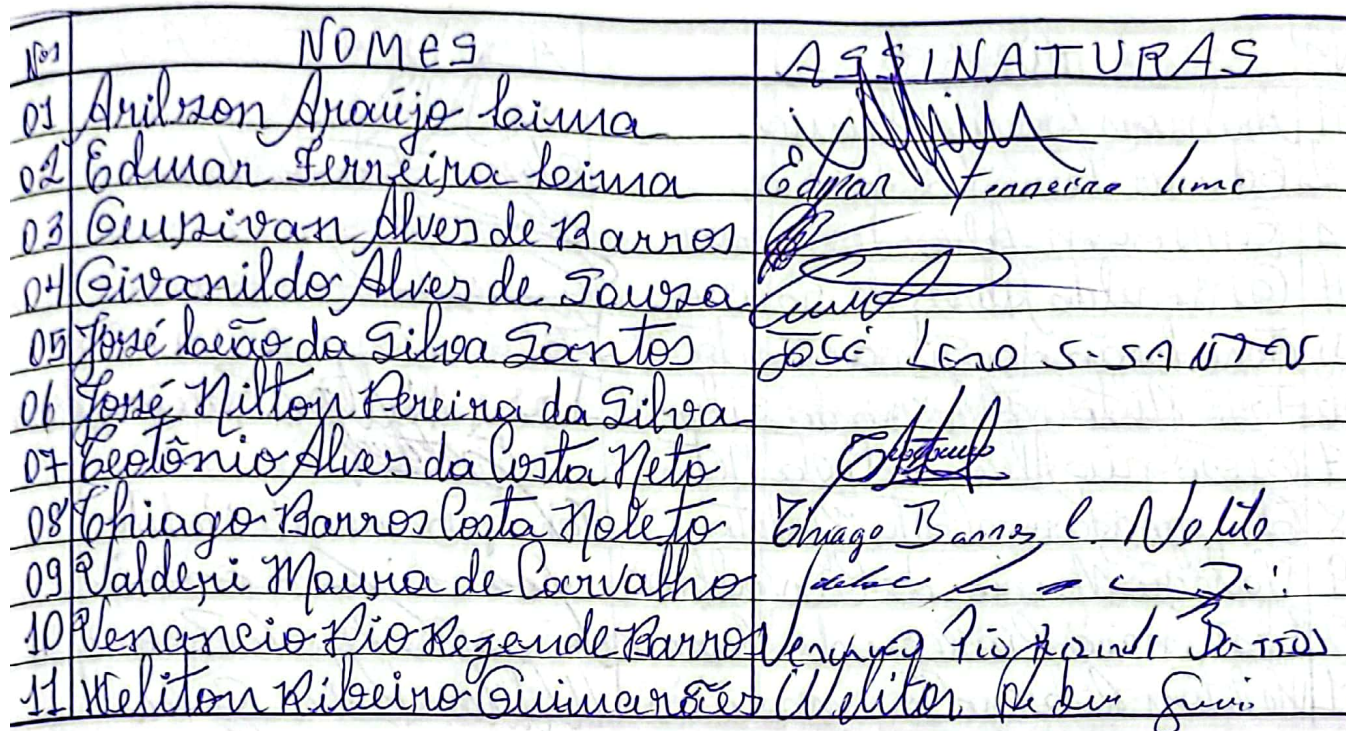 Nos NOMES ASSINATURAS
01 Arilson Araújo Lima
02 Edmar Ferreira Lima Edmar Ferreira Lima
03 Alves de Barros
04 Givanildo Alves de Sousa
05 José Leão da Silva Santos JOSÉ LEAO S. SANTOS
06 José Nilton Pereira da Silva
07 Teotônio Alves da Costa Neto
08 Thiago Barros Costa Noleto Thiago Barros C. Noleto
09 Valderi Moura de Carvalho
10 Venancio Pio Rezende Barros Pio Barros
11 Weliton Ribeiro Guimarães Weliton